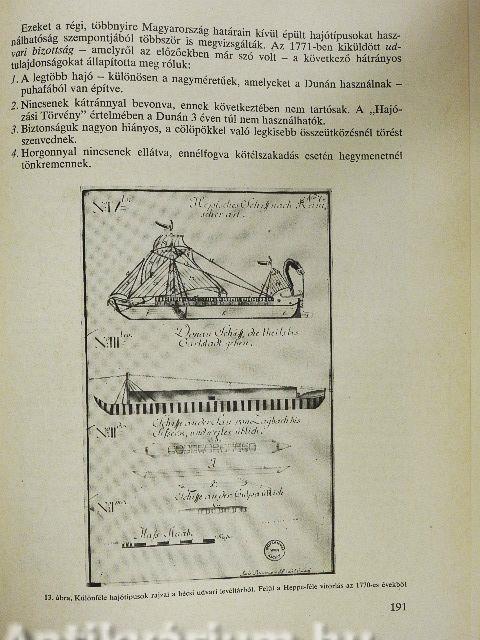 Ezeket a régi, többnyire Magyarország határain kívül épült hajótípusokat hasz-
nálhatóság szempontjából többször is megvizsgálták. Az 1771-ben kiküldött ud-
vari bizottság – amelyről az előzőekben már szó volt – a következő hátrányos
tulajdonságokat állapította meg róluk:
1. A legtöbb hajó – különösen a nagyméretűek, amelyeket a Dunán használnak –
puhafából van építve.
2. Nincsenek kátránnyal bevonva, ennek következtében nem tartósak. A „Hajó-
zási Törvény” értelmében a Dunán 3 éven túl nem használhatók.
3. Biztonságuk nagyon hiányos, a cölöpökkel való legkisebb összeütközésnél törést
szenvednek.
4. Horgonnyal nincsenek ellátva, ennélfogva kötélszakadás esetén hegymenetnél
tönkremennek.
Heppisches Schiff nach
Donau Schiff, die theils bis
Carlstadt gehen.
bis
üblich.
Schiffe
Maß Staab.
13. ábra. Különféle hajótípusok rajzai a bécsi udvari levéltárból. Felül a Heppe-féle vitorlás az 1770-es évekből
191
Antikvárium.hu